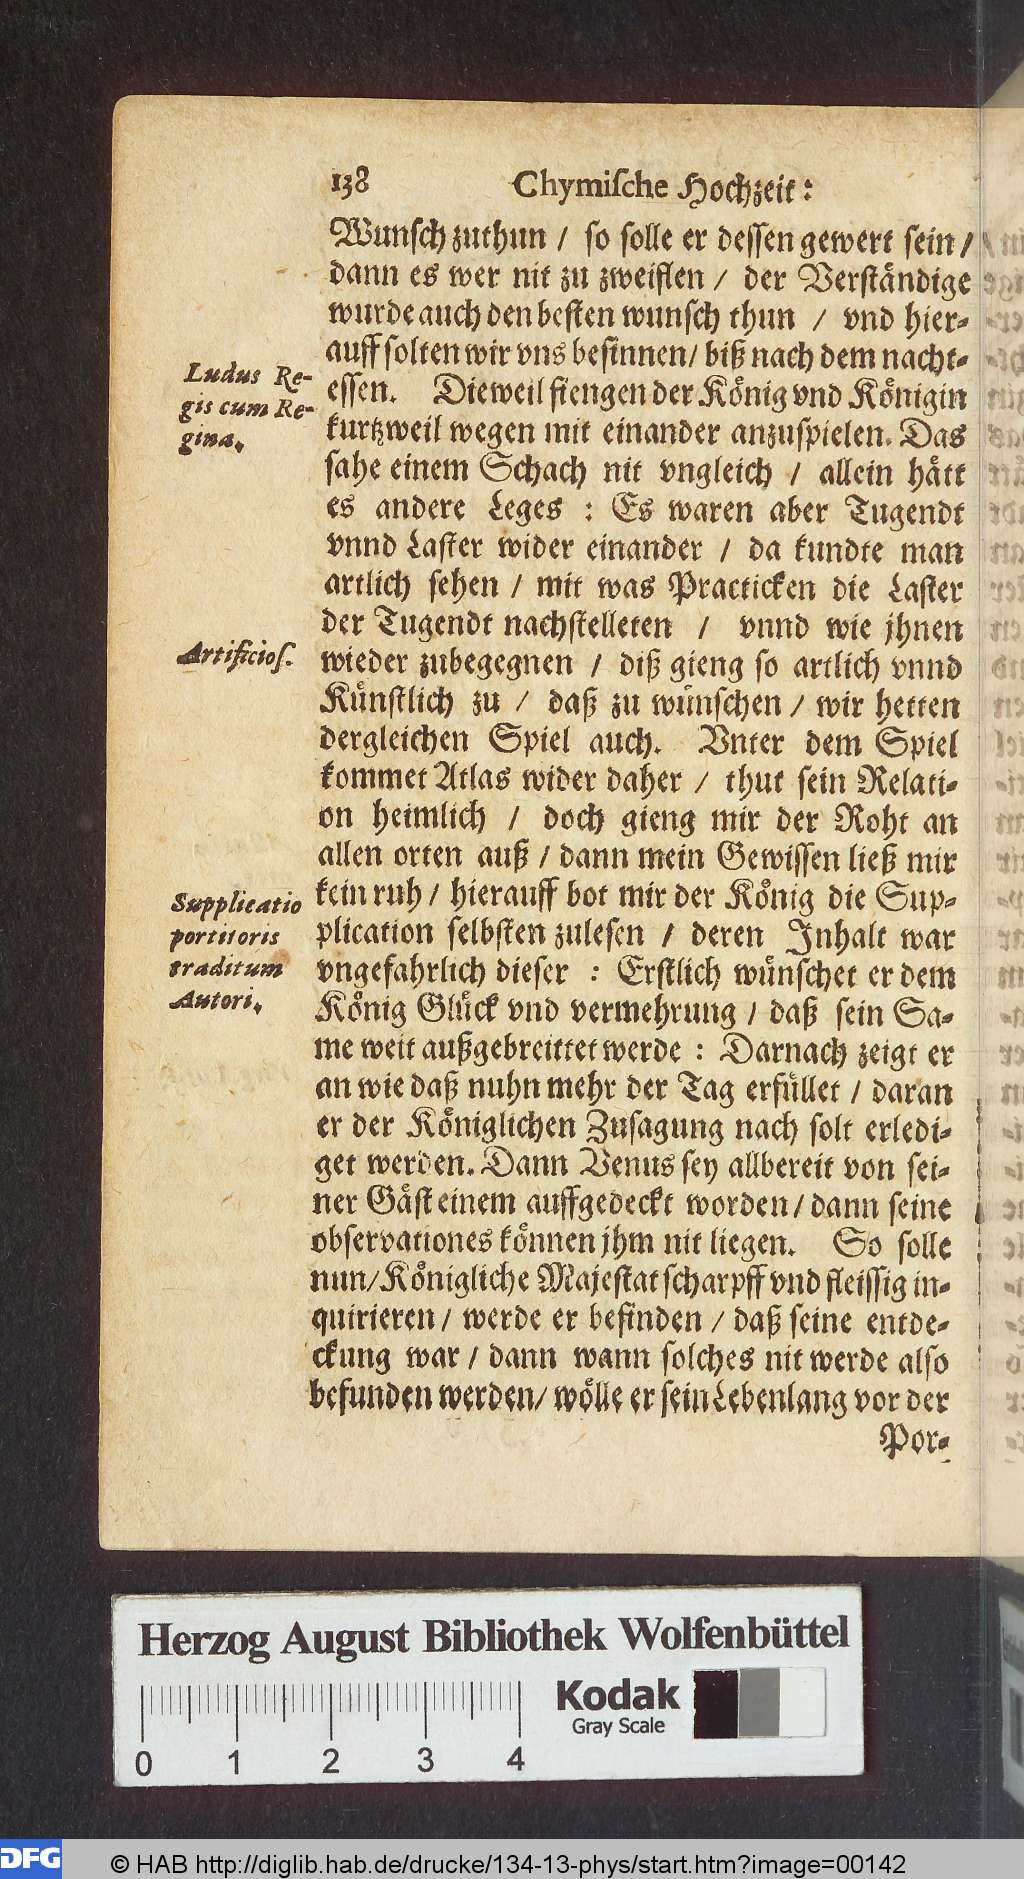 138 Chymiſche Hochzeit:
Wunſch zuthun / ſo ſolle er deſſen gewert ſein /
dann es wer nit zu zweiflen / der Verſtändige
wurde auch den beſten wunſch thun / vnd hier-
auff ſolten wir vns beſinnen / biß nach dem nacht-
Ludus Re-
gis cum Re-
gina.
eſſen. Dieweil fiengen der König vnd Königin
kurtzweil wegen mit einander anzuſpielen. Das
ſahe einem Schach nit vngleich / allein hätt
es andere Leges : Es waren aber Tugendt
vnnd Laſter wider einander / da kundte man
artlich ſehen / mit was Practicken die Laſter
der Tugendt nachſtelleten / vnnd wie jhnen
Artificioſ.
wieder zubegegnen / diß gieng ſo artlich vnnd
Künſtlich zu / daß zu wünſchen / wir hetten
dergleichen Spiel auch. Vnter dem Spiel
kommet Atlas wider daher / thut ſein Relati-
on heimlich / doch gieng mir der Roht an
allen orten auß / dann mein Gewiſſen ließ mir
Supplicatio
portitoris
traditum
Autori.
kein ruh / hierauff bot mir der König die Sup-
plication ſelbſten zuleſen / deren Inhalt war
vngefahrlich dieſer : Erſtlich wünſchet er dem
König Glück vnd vermehrung / daß ſein Sa-
me weit außgebreittet werde : Darnach zeigt er
an wie daß nuhn mehr der Tag erfüllet / daran
er der Königlichen Zuſagung nach ſolt erledi-
get werden. Dann Venus ſey allbereit von ſei-
ner Gäſt einem auffgedeckt worden / dann ſeine
obſervationes können jhm nit liegen. So ſolle
nun / Königliche Majeſtat ſcharpff vnd fleiſſig in-
quirieren / werde er befinden / daß ſeine entde-
ckung war / dann wann ſolches nit werde alſo
befunden werden / wölle er ſein Lebenlang vor der
Por-
Herzog August Bibliothek Wolfenbüttel
Kodak
Gray Scale
0 1 2 3 4
DFG © HAB http://diglib.hab.de/drucke/134-13-phys/start.htm?image=00142